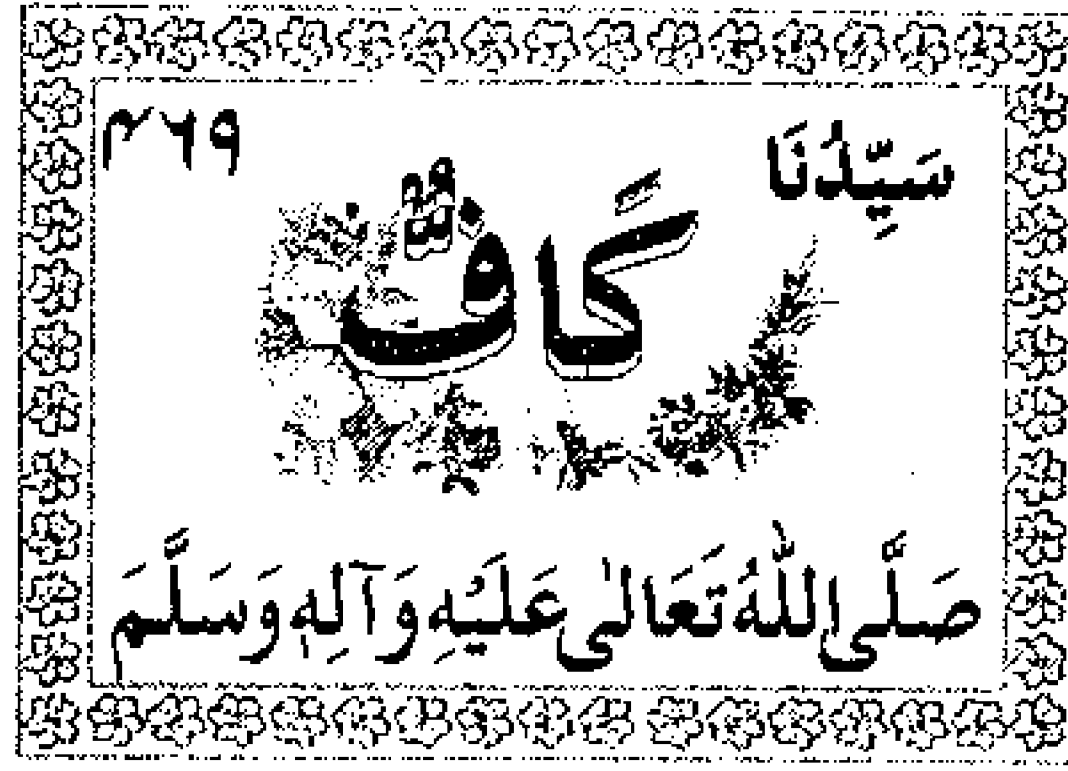 سَيِّدُنَا
۴۶۹
كَافٌّ
صَلَّى اللّٰهُ تَعَالٰى عَلَيْهِ وَآلِهٖ وَسَلَّمَ